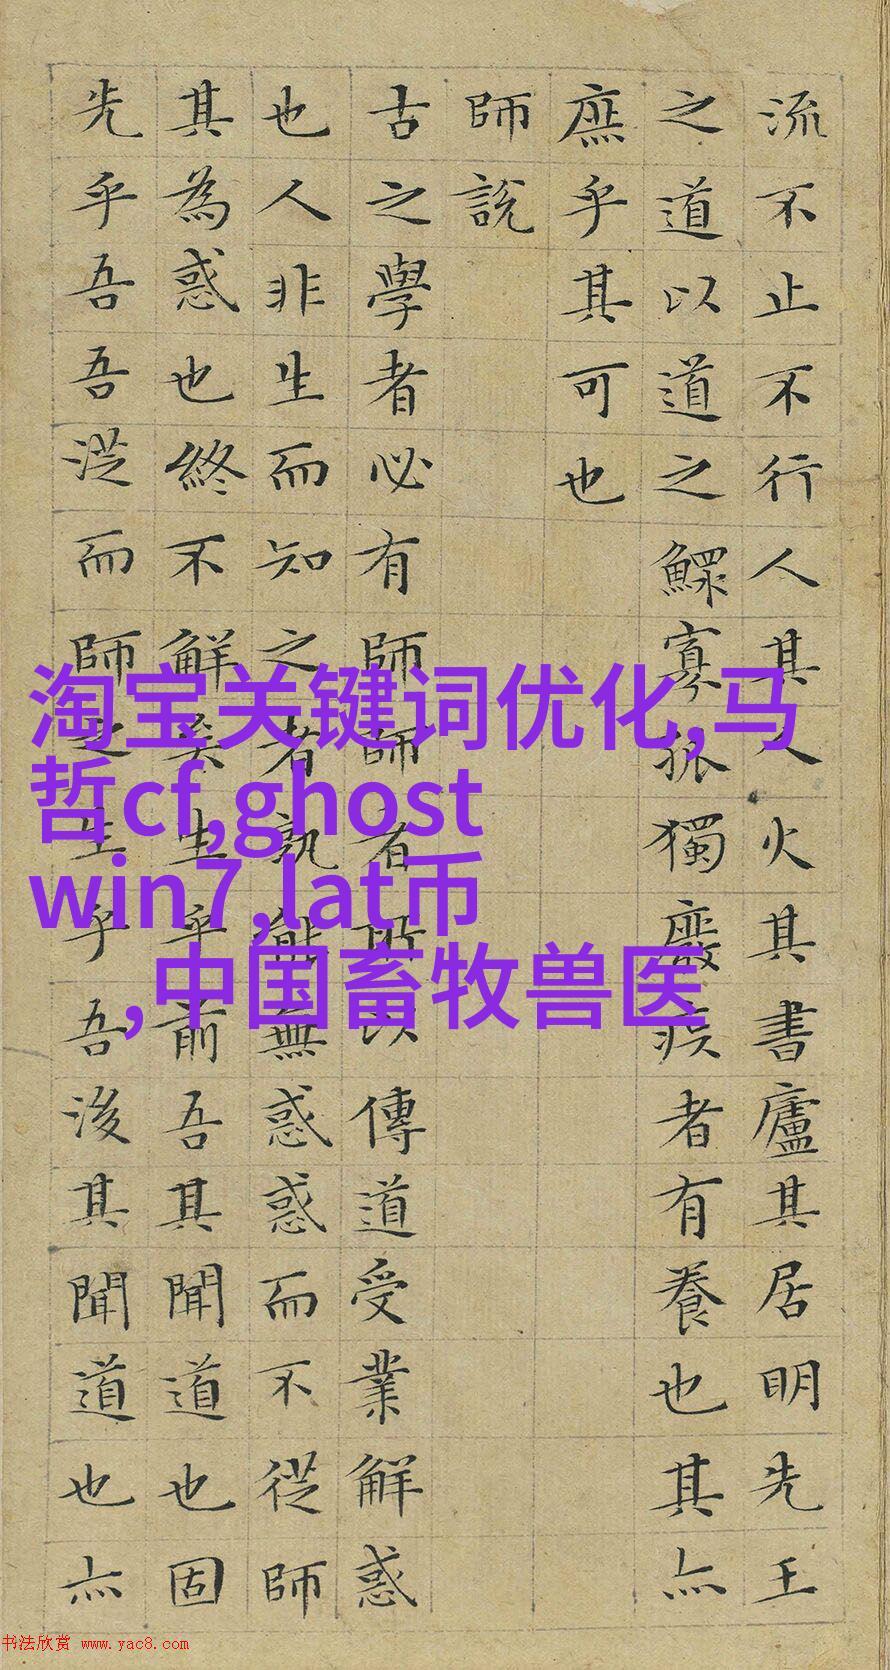 流不止不行人其人火其書廬其居明先王
之道以道之鰥寡孤獨癈疾者有養也其亦
庶乎其可也
師說
古之學者必有師師者所以傳道受業解惑
也人非生而知之者孰能無惑惑而不從師
其為惑也終不解矣生乎前吾其聞道也固
先乎吾吾從而師之生乎吾後其聞道也亦
淘宝关键词优化,马
哲cf,ghost
win7,lat币
,中国畜牧兽医
书法欣赏 www.yac8.com